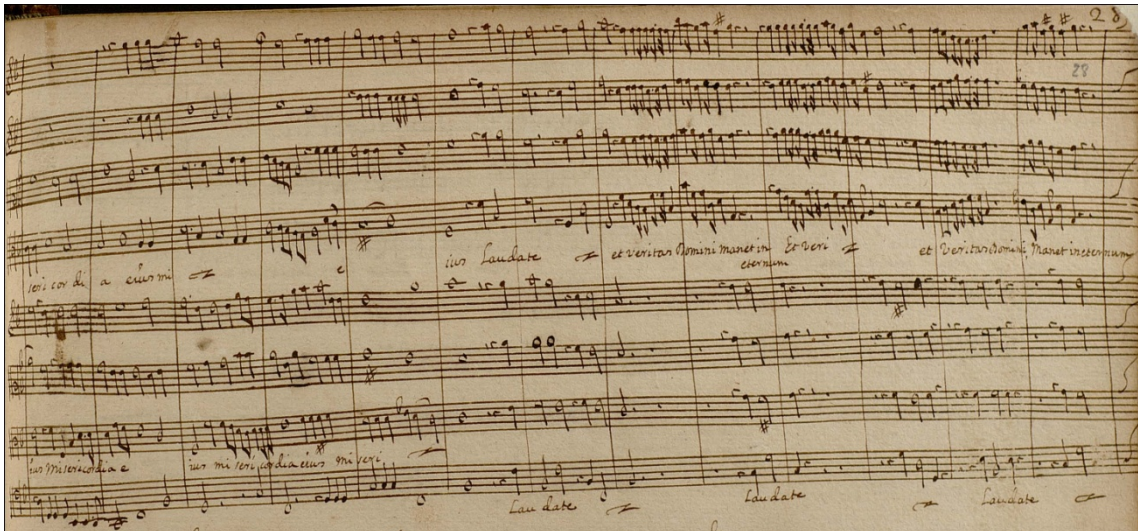 28
28
seri cor di a eius mi e ius Laudate et veritas Domini manet in Et veri et veritas Domini Manet in eternum
eternum
ius Misericordia e ius mi seri cordia eius mi seri
Lau date Lau date Laudate